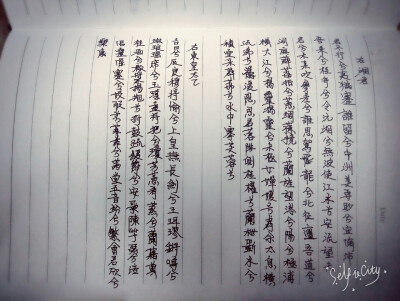 君不行兮夷猶蹇誰留兮中洲美要眇兮宜修沛
吾乘兮桂舟令沅湘兮無波使江水兮安流望夫
君兮未來吹參差兮誰思駕飛龍兮北征邅吾道兮
洞庭薜荔柏兮蕙綢蓀橈兮蘭旌望涔陽兮極浦
橫大江兮揚靈揚靈兮未極女嬋媛兮為余太息橫
流涕兮潺湲隱思君兮陫側桂櫂兮蘭枻斲冰兮
積雪采薜荔兮水中搴芙蓉兮
東皇太乙
吉日兮辰良穆將愉兮上皇撫長劍兮玉珥璆鏘鳴兮
琳琅瑤席兮玉瑱盍將把兮瓊芳蕙肴蒸兮蘭藉奠
桂酒兮椒漿揚枹兮拊鼓疏緩節兮安歌陳竽瑟兮浩
倡靈偃蹇兮姣服芳菲菲兮滿堂五音紛兮繁會君欣兮
樂康
Self in City.